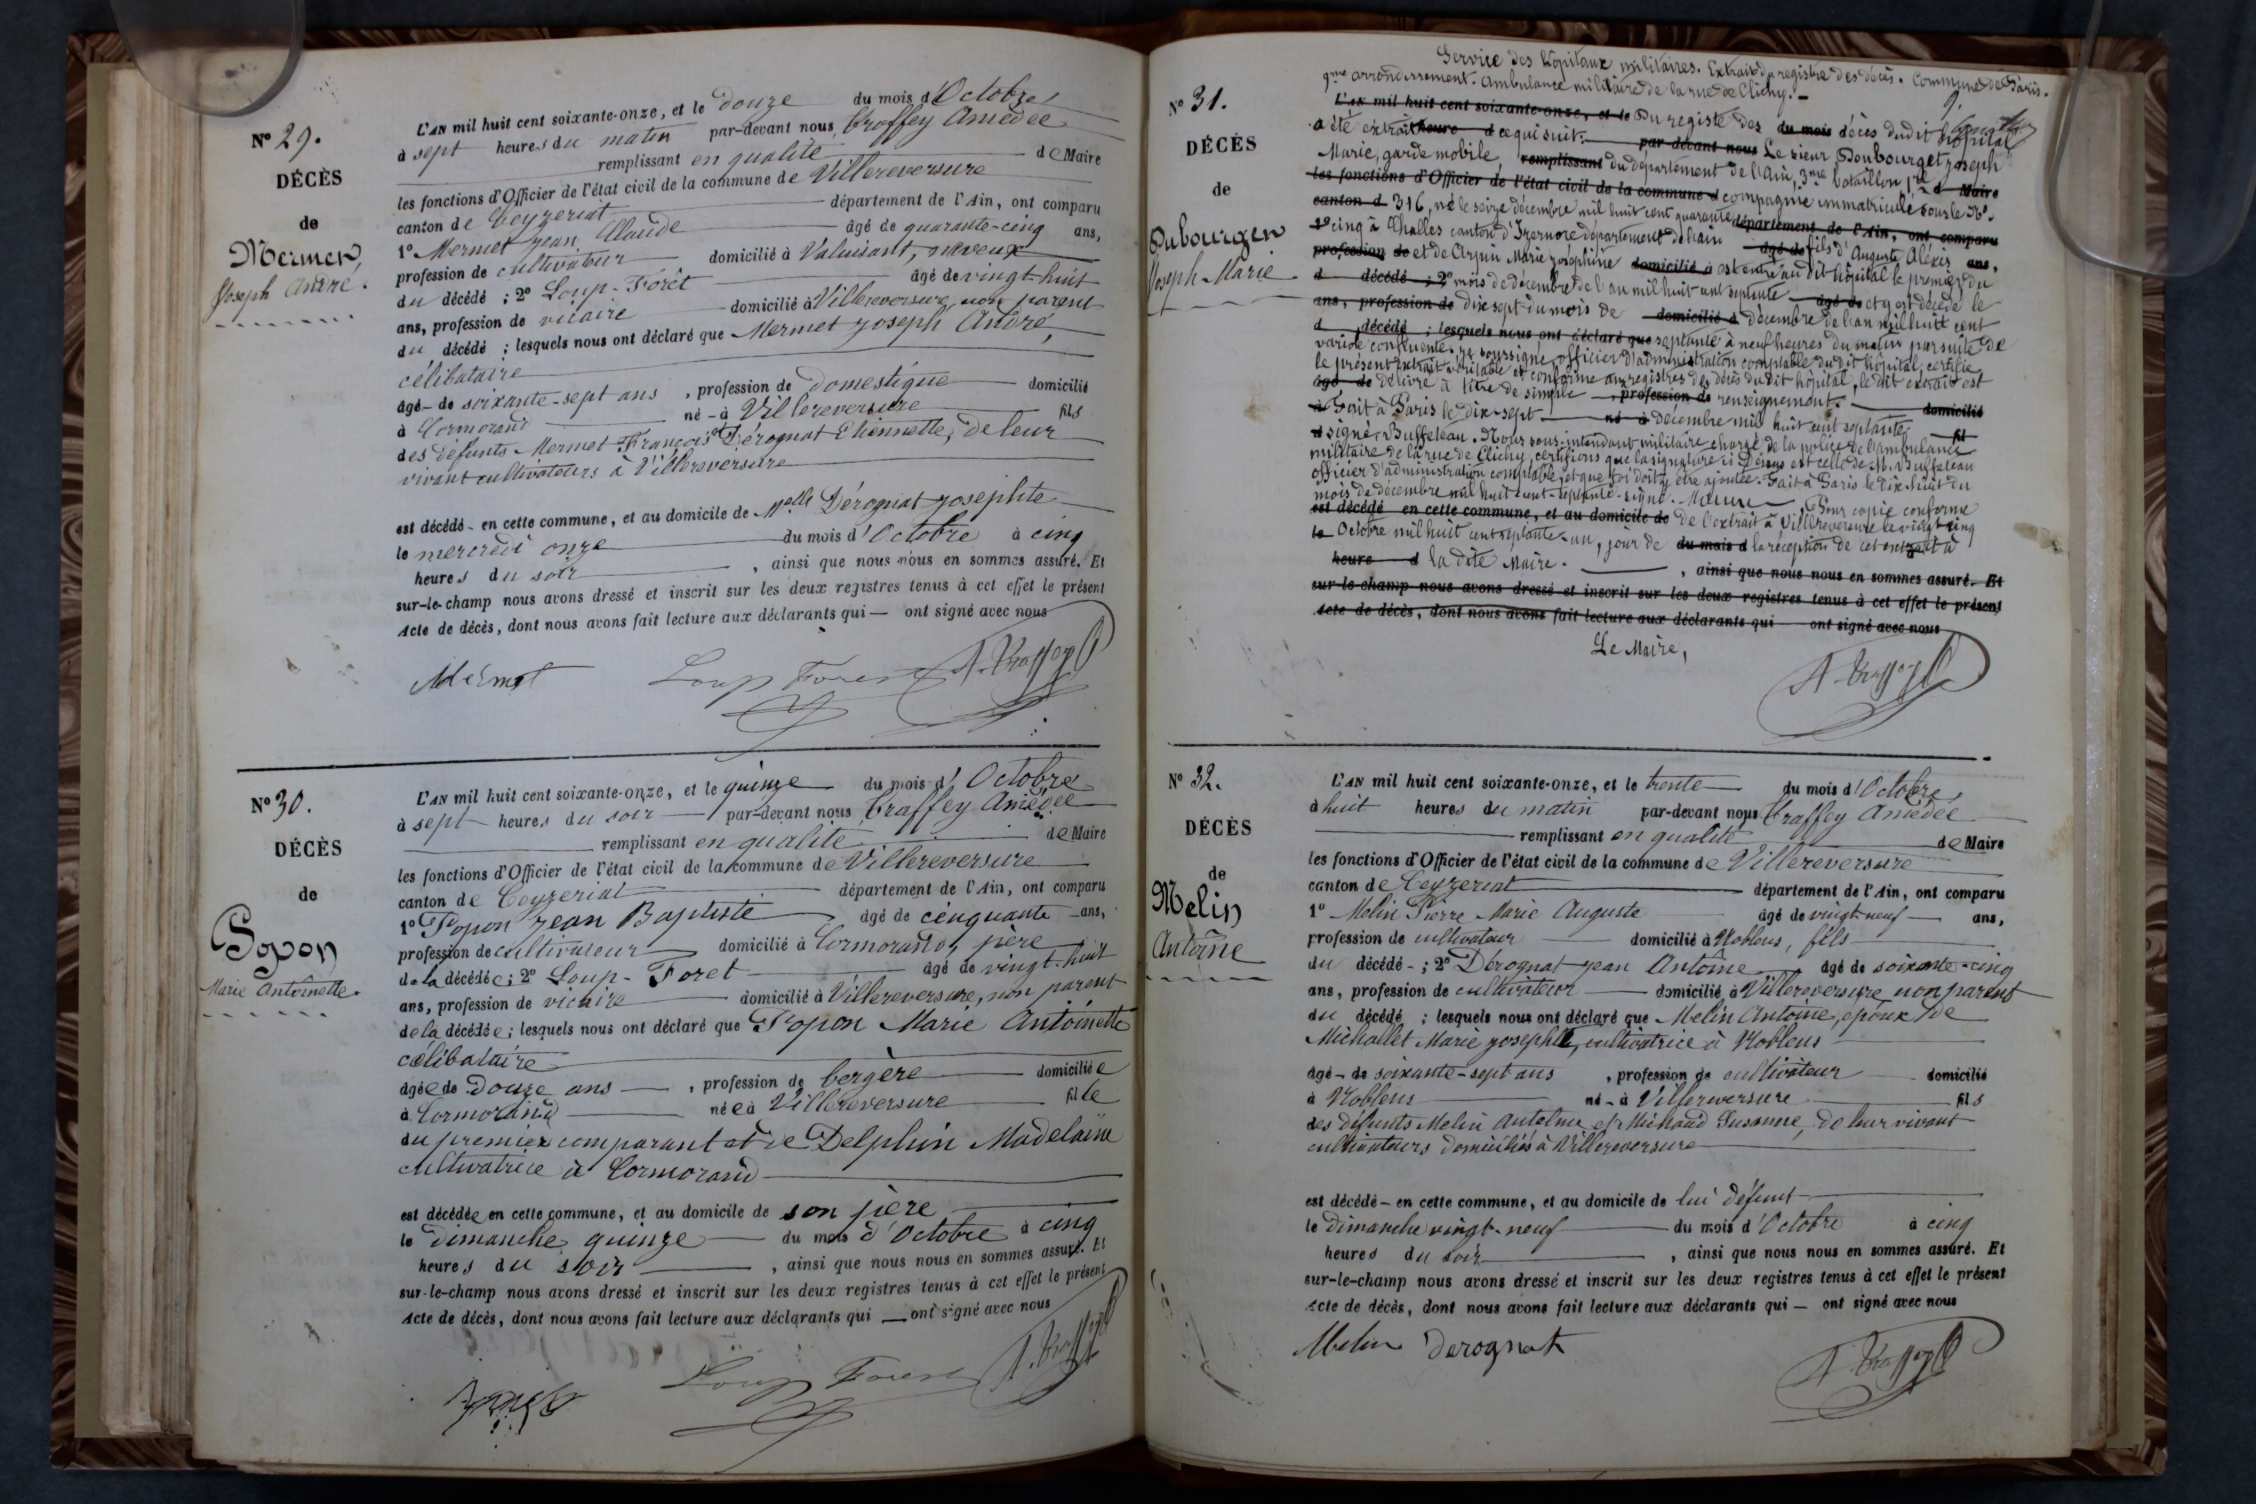 Nº 29.
DÉCÈS
de
Mermet
Joseph André.
L'AN mil huit cent soixante-onze, et le douze du mois d'Octobre
à sept heures du matin par-devant nous Traffey Amédée
remplissant en qualité de Maire
les fonctions d'Officier de l'état civil de la commune de Villereversure
canton de Ceyzeriat département de l'Ain, ont comparu
1º Mermet Jean Claude âgé de quarante-cinq ans,
profession de cultivateur domicilié à Valuisant, neveux
du décédé ; 2º Loup-Forêt âgé de vingt-huit
ans, profession de vicaire domicilié à Villereversure, non parent
du décédé ; lesquels nous ont déclaré que Mermet Joseph André,
célibataire
âgé - de soixante-sept ans , profession de domestique domicilié
à Cormorand né - à Villereversure fils
des défunts Mermet François et Dérognat Etiennette, de leur
vivant cultivateurs à Villereversure
est décédé - en cette commune, et au domicile de Melle Dérognat Josephte
le mercredi onze du mois d'Octobre à cinq
heures du soir , ainsi que nous nous en sommes assuré. Et
sur-le-champ nous avons dressé et inscrit sur les deux registres tenus à cet effet le présent
Acte de décès, dont nous avons fait lecture aux déclarants qui — ont signé avec nous
Mermet Loup Forest A. Traffey
Nº 30.
DÉCÈS
de
Popon
Marie Antoinette.
L'AN mil huit cent soixante-onze, et le quinze du mois d'Octobre
à sept heures du soir par-devant nous Traffey Amédée
remplissant en qualité de Maire
les fonctions d'Officier de l'état civil de la commune de Villereversure
canton de Ceyzeriat département de l'Ain, ont comparu
1º Popon Jean Baptiste âgé de cinquante ans,
profession de cultivateur domicilié à Cormorand, père
de la décédée ; 2º Loup-Foret âgé de vingt-huit
ans, profession de vicaire domicilié à Villereversure, non parent
de la décédée ; lesquels nous ont déclaré que Popon Marie Antoinette
célibataire
âgée de douze ans , profession de bergère domiciliée
à Cormorand née à Villereversure fille
du premier comparant et de Delphin Madelaine
cultivatrice à Cormorand
est décédée en cette commune, et au domicile de son père
le dimanche quinze du mois d'Octobre à cinq
heures du soir , ainsi que nous nous en sommes assuré. Et
sur-le-champ nous avons dressé et inscrit sur les deux registres tenus à cet effet le présent
Acte de décès, dont nous avons fait lecture aux déclarants qui — ont signé avec nous
Loup Forest A. Traffey
Nº 31.
DÉCÈS
de
Dubourget
Joseph-Marie
Service des hôpitaux militaires. Extrait du registre des décès. Commune de Paris.
9me arrondissement. Ambulance militaire de la rue de Clichy. —
L'AN mil huit cent soixante-onze, et le Du registe des du mois décès dudit hôpital
a été extrait heure d ce qui suit. par-devant nous Le sieur Doubourget Joseph
Marie, garde mobile remplissant du département de l'Ain, 3me bataillon, 1re d Maire
les fonctions d'Officier de l'état civil de la commune d compagnie immatriculé sous le Nº.
canton d 316, né le seize décembre mil huit cent quarante département de l'Ain, ont comparu
1º cinq à Challes canton d'Izernore département de l'ain âgé de fils d'Auguste Alexis ans,
profession de et de Arpin Marie Joséphine domicilié à est entré au dit hôpital le premier du
d décédé ; 2º mois de décembre de l'an mil huit cent septante âgé de et y est décédé le
ans, profession de dix sept du mois de domicilié à décembre de l'an mil huit cent
d décédé ; lesquels nous ont déclaré que septante à neuf heures du matin par suite de
variole confluente. Je soussigné, officier d'administration comptable du dit hôpital, certifie
le présent extrait véritable et conforme aux registres des décès du dit hôpital, le dit extrait est
âgé de délivré à titre de simple , profession de renseignement. domicilié
à Fait à Paris le dix-sept né à décembre mil huit cent septante
d signé: Buffeteau. Nous sous-intendant militaire chargé de la police de l'ambulance fil
militaire de la rue de Clichy, certifions que la signature ci dessus est celle de M. Buffeteau
officier d'administration comptable, et que foi doit y être ajoutée. Fait à Paris le dix-huit du
mois de décembre mil huit cent-septante. signé. Pour copie conforme
est décédé en cette commune, et au domicile de de l'extrait à Villereversure le vingt cinq
le Octobre mil huit cent septante-un, jour de du mois d la réception de cet extrait à
heure d la dite Mairie. , ainsi que nous nous en sommes assuré. Et
sur-le-champ nous avons dressé et inscrit sur les deux registres tenus à cet effet le présent
Acte de décès, dont nous avons fait lecture aux déclarants qui ont signé avec nous
Le Maire,
A. Traffey
Nº 32.
DÉCÈS
de
Melin
Antoine
L'AN mil huit cent soixante-onze, et le trente du mois d'Octobre
à huit heures du matin par-devant nous Traffey Amédée
remplissant en qualité de Maire
les fonctions d'Officier de l'état civil de la commune de Villereversure
canton de Ceyzeriat département de l'Ain, ont comparu
1º Melin Pierre Marie Auguste âgé de vingt-neuf ans,
profession de cultivateur domicilié à Noblens, fils
du décédé - ; 2º Dérognat Jean Antoine âgé de soixante-cinq
ans, profession de cultivateur domicilié à Villereversure, non parent
du décédé ; lesquels nous ont déclaré que Melin Antoine, époux de
Michallet Marie Josephte, cultivatrice à Noblens
âgé - de soixante-sept ans , profession de cultivateur domicilié
à Noblens né - à Villereversure fils
des défunts Melin Antelme et Michaud Susanne, de leur vivant
cultivateurs domiciliés à Villereversure
est décédé - en cette commune, et au domicile de lui défunt
le dimanche vingt-neuf du mois d'Octobre à cinq
heures du soir , ainsi que nous nous en sommes assuré. Et
sur-le-champ nous avons dressé et inscrit sur les deux registres tenus à cet effet le présent
Acte de décès, dont nous avons fait lecture aux déclarants qui — ont signé avec nous
Melin Derognat A. Traffey